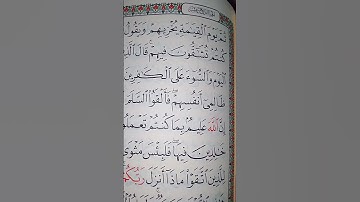 ثُمَّ يَوْمَ ٱلْقِيَٰمَةِ يُخْزِيهِمْ وَيَقُولُ
كُنتُمْ تُشَٰٓقُّونَ فِيهِمْ قَالَ ٱلَّذِ
ٱلْيَوْمَ وَٱلسُّوٓءَ عَلَى ٱلْكَٰفِرِينَ
ظَالِمِىٓ أَنفُسِهِمْ فَأَلْقَوُا۟ ٱلسَّلَمَ
إِنَّ ٱللَّهَ عَلِيمٌۢ بِمَا كُنتُمْ تَعْمَلُو
خَٰلِدِينَ فِيهَا فَلَبِئْسَ مَثْوَى
لِلَّذِينَ ٱتَّقَوْا۟ مَاذَآ أَنزَلَ رَبُّكُمْ